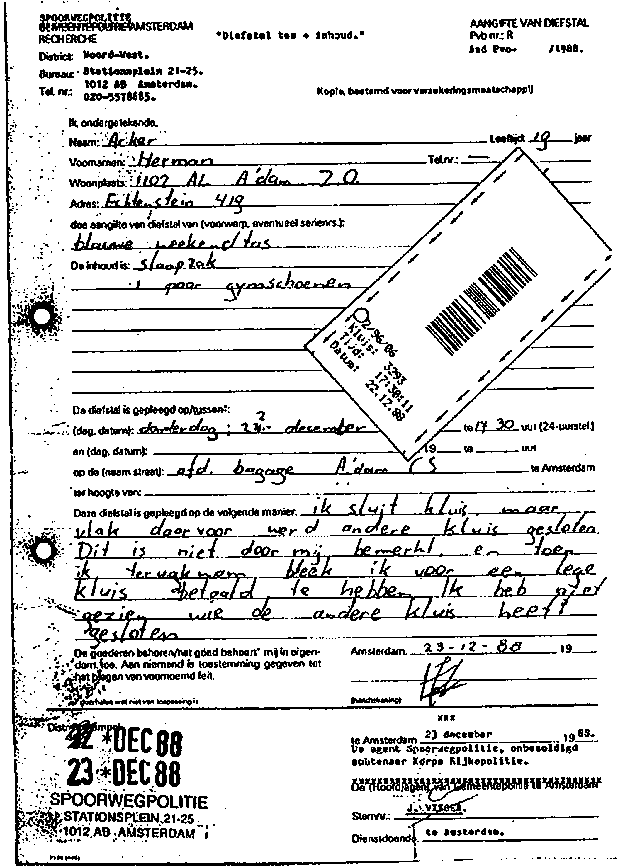 SPOORWEGPOLITIE
GEMEENTEPOLITIE AMSTERDAM
RECHERCHE
"Diefstal tas + inhoud."
AANGIFTE VAN DIEFSTAL
Pvb nr.: R
/1988.
District: Noord-West.
Bureau: Stationsplein 21-25.
1012 AB Amsterdam.
Tel. nr.:
Kopie, bestemd voor verzekeringsmaatschappij
Ik, ondergetekende,
Naam: Acker Leeftijd: 19 jaar
Voornamen: Herman Tel.nr.: —
Woonplaats: 1102 AL A'dam Z.O.
Adres: Echtenstein 419
doe aangifte van diefstal van (voorwerp, eventueel serienrs.):
blauwe weekendtas
De inhoud is: slaapzak
1 paar gymschoenen
02/96/06
Kluis: 3293
Tijd: 17:30:11
Datum: 22.12.88
De diefstal is gepleegd op/tussen*:
(dag, datum): donderdag; 22 december te 17 30 uur (24-uurstel)
en (dag, datum): 19 te uur
op de (naam straat): afd. bagage A'dam CS te Amsterdam
ter hoogte van:
Deze diefstal is gepleegd op de volgende manier: ik sluit kluis, maar
vlak daarvoor werd andere kluis gesloten.
Dit is niet door mij bemerkt, en toen
ik terugkwam bleek ik voor een lege
kluis betaald te hebben. Ik heb niet
gezien wie de andere kluis heeft
gesloten
De goederen behoren/het goed behoort* mij in eigen-
dom toe. Aan niemand is toestemming gegeven tot
het plegen van voornoemd feit.
Amsterdam, 23-12-88 19
(handtekening)
* doorhalen wat niet van toepassing is
Districtsstempel
22 *DEC 88
23 *DEC 88
SPOORWEGPOLITIE
STATIONSPLEIN 21-25
1012 AB AMSTERDAM
xxx
te Amsterdam 23 december 1988.
De agent Spoorwegpolitie, onbezoldigd
ambtenaar Korps Rijkspolitie.
De (Hoofd)agent van Gemeentepolitie te Amsterdam
Stamnr.:
Dienstdoende te Amsterdam.